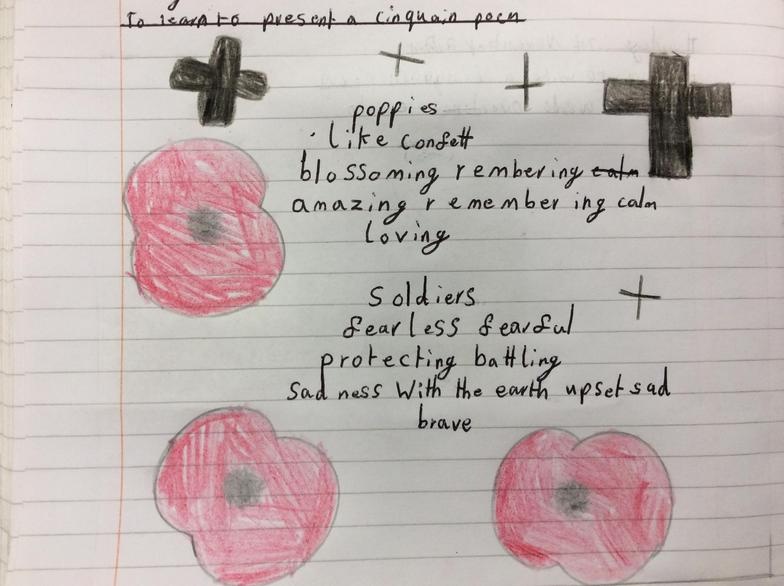 To learn to present a cinquain poem
poppies
like confett
blossoming rembering calm
amazing remembering calm
loving
Soldiers
fearless fearful
protecting battling
Sadness With the earth upset sad
brave